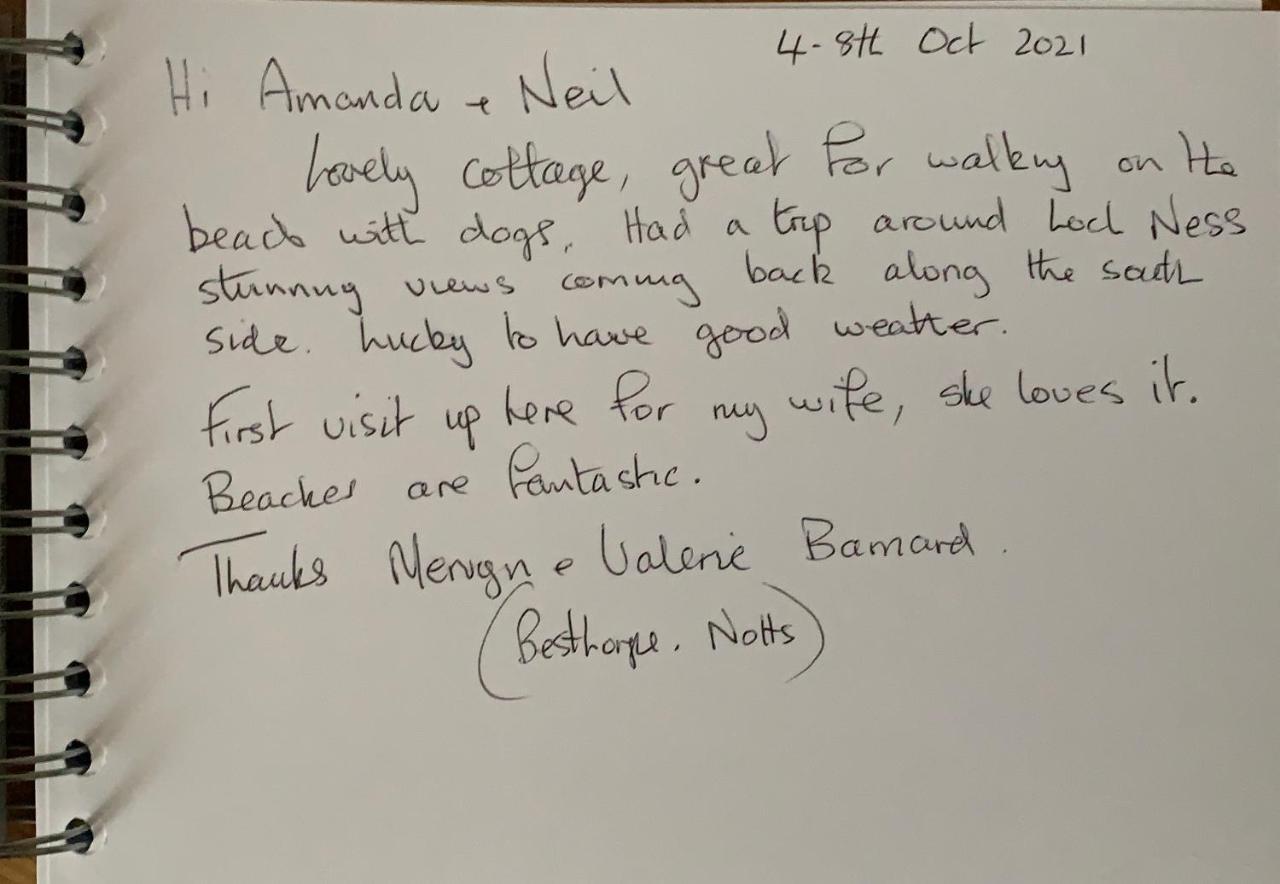 4-8th Oct 2021
Hi Amanda + Neil
Lovely cottage, great for walking on the
beach with dogs. Had a trip around Loch Ness
stunning views coming back along the south
side. Lucky to have good weather.
First visit up here for my wife, she loves it.
Beaches are fantastic.
Thanks Mervyn + Valerie Barnard.
(Besthorpe. Notts)